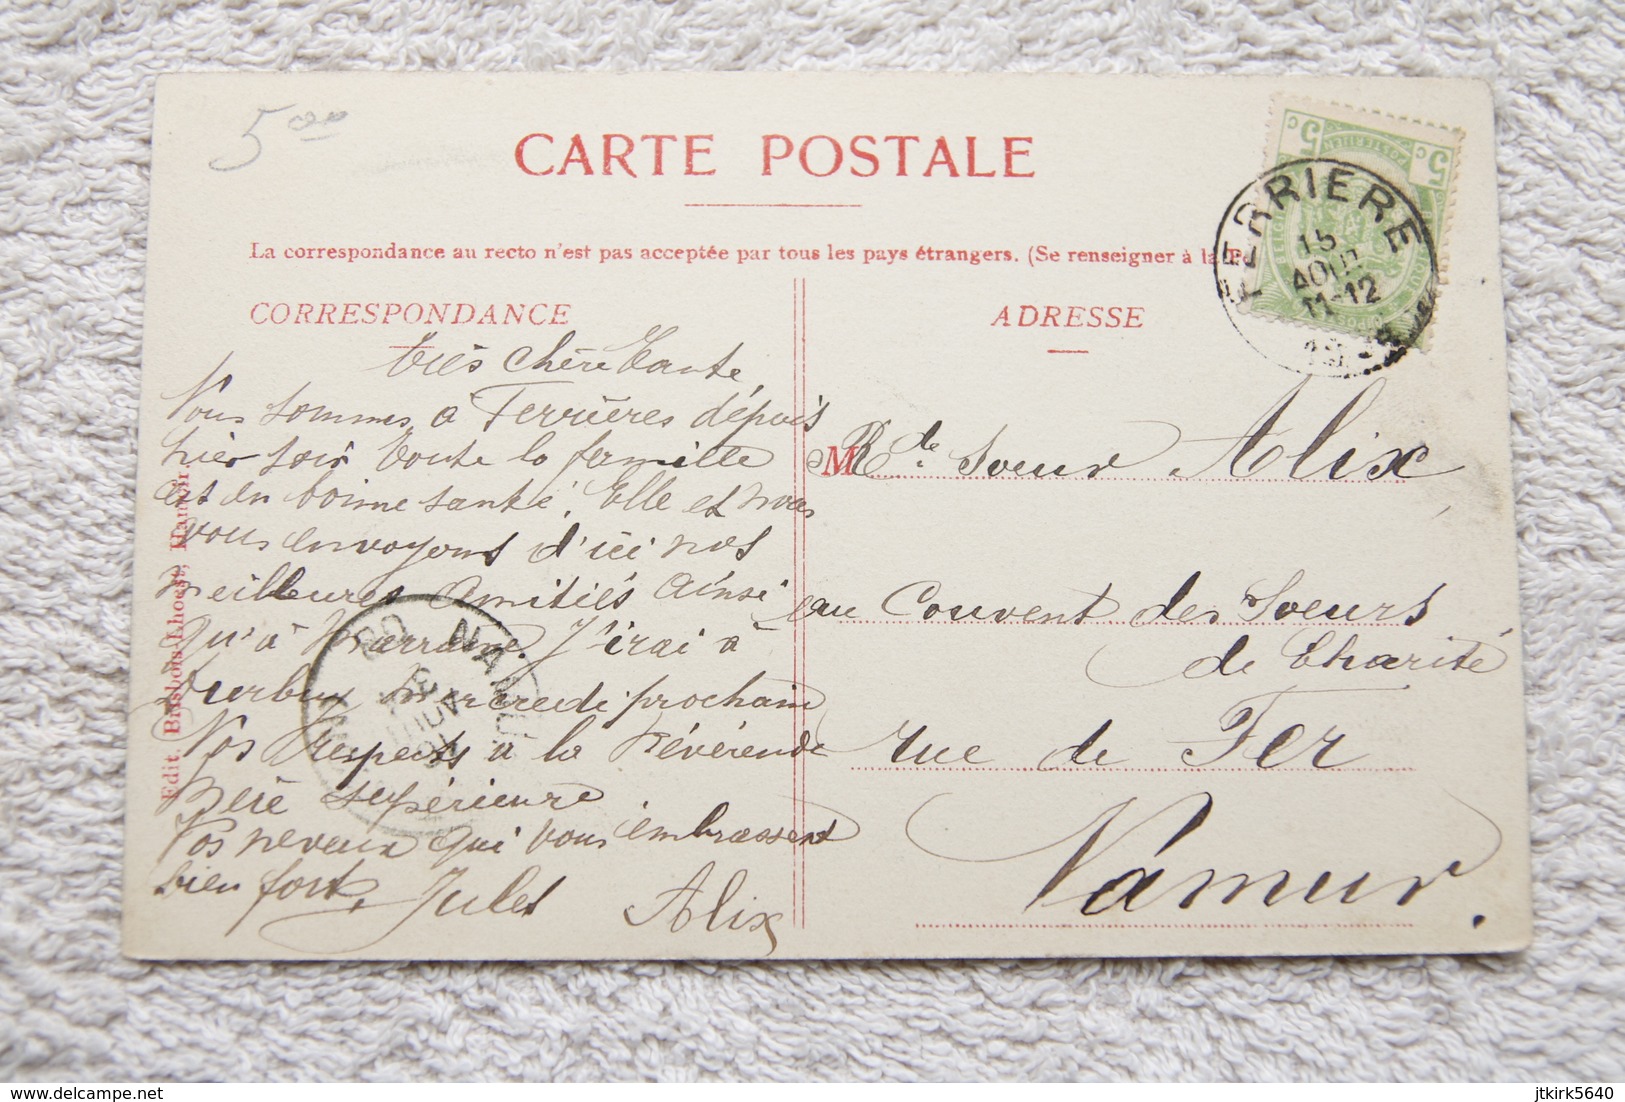 5 00
CARTE POSTALE
La correspondance au recto n'est pas acceptée par tous les pays étrangers. (Se renseigner à la
CORRESPONDANCE
ADRESSE
5 c
c 5
POSTERIJEN
FERRIERE
15
AOUT
11-12
très chère tante,
Nous sommes à Ferrières dépuis
hier soir toute la famille
est en bonne santé. Elle et nous
vous envoyons d'ici nos
meilleures amitiés ainsi
qu'à Marraine. J'irai à
Durbuy mercredi prochain
Vos respects à la Révérende
Mère supérieure
Vos neveux qui vous embrassent
bien fort.
Jules Alix
M Rde Soeur Alix
au Couvent des Soeurs
de Charité
rue de Fer
Namur.
NAMUR
AOUT
Edit. Brisbois-Lhoest, Hamoir.
jtkirk5640